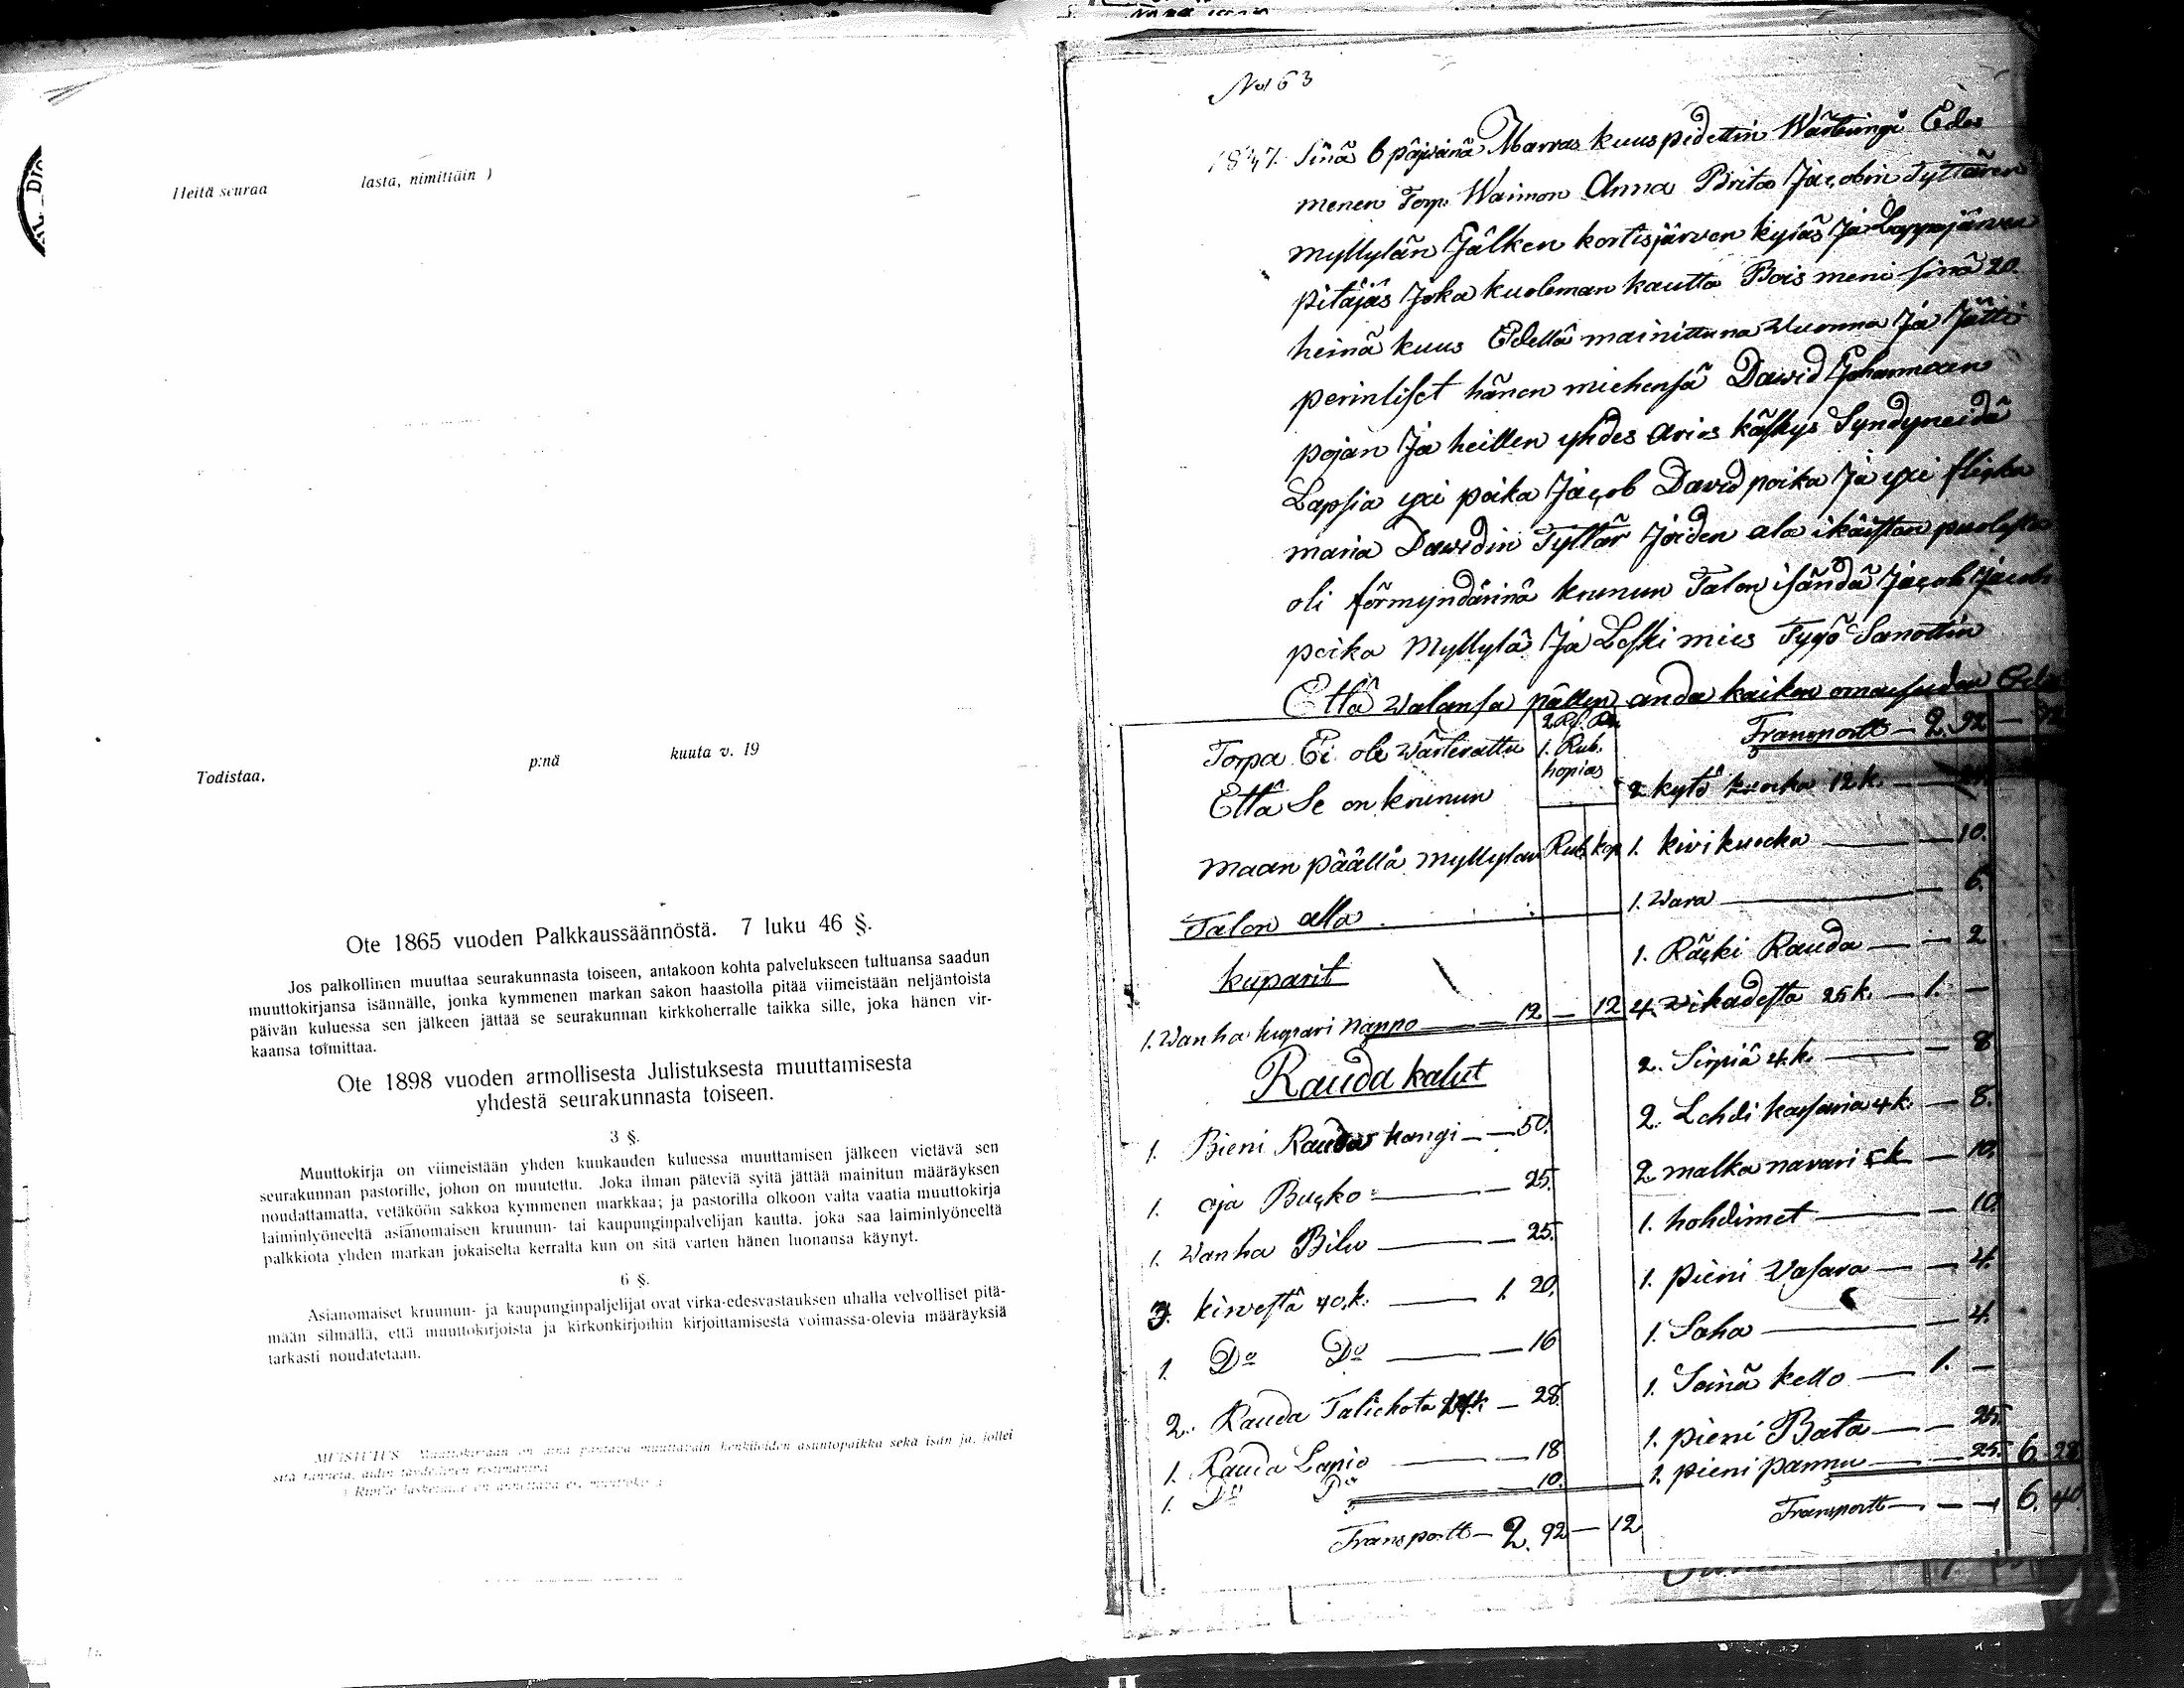 Heitä seuraa lasta, nimittäin )
Todistaa, p:nä kuuta v. 19
Ote 1865 vuoden Palkkaussäännöstä. 7 luku 46 §.
Jos palkollinen muuttaa seurakunnasta toiseen, antakoon kohta palvelukseen tultuansa saadun
muuttokirjansa isännälle, jonka kymmenen markan sakon haastolla pitää viimeistään neljäntoista
päivän kuluessa sen jälkeen jättää se seurakunnan kirkkoherralle taikka sille, joka hänen vir-
kaansa toimittaa.
Ote 1898 vuoden armollisesta Julistuksesta muuttamisesta
yhdestä seurakunnasta toiseen.
3 §.
Muuttokirja on viimeistään yhden kuukauden kuluessa muuttamisen jälkeen vietävä sen
seurakunnan pastorille, johon on muutettu. Joka ilman päteviä syitä jättää mainitun määräyksen
noudattamatta, vetäköön sakkoa kymmenen markkaa; ja pastorilla olkoon valta vaatia muuttokirja
laiminlyöneeltä asianomaisen kruunun- tai kaupunginpalvelijan kautta, joka saa laiminlyöneeltä
palkkiota yhden markan jokaiselta kerralta kun on sitä varten hänen luonansa käynyt.
6 §.
Asianomaiset kruunun- ja kaupunginpaljelijat ovat virka-edesvastauksen uhalla velvolliset pitä-
mään silmällä, että muuttokirjoista ja kirkonkirjoihin kirjoittamisesta voimassa-olevia määräyksiä
tarkasti noudatetaan.
MUISTUTUS Muuttokirjaan on aina pantava muuttavain henkilöiden asuntopaikka sekä isän ja, jollei
No 63
1847. Sinä 6 päiwänä Marras kuus pidettin Wärteringi Edes
menen Torp. Waimon Anna Brita Jacobin Tyttären
myllylän Jälken kortisjärwen kyläs Ja Lappajärwen
pitäjäs Joka kuoleman kautta Bois meni sinä 20.
heinä kuus Edellä mainittuna Wuonna Ja Jätti
perinliset hänen miehensä Dawid Johannexen
pojan Ja heillen yhdes Avios käskys Syndyneidä
Lapsia yxi poika Jacob David poika Ja yxi flicka
maria Dawidin Tyttär Joiden ala ikäisten puolesta
oli förmyndärinä krunun Talon isändä Jacob Jacob
poika Myllylä Ja Leski mies Tygö Sanottin
Että walansa pällen anda kaiken omaisuden Edes
Torpa Ei ole wärterattu
Että Se on krunun
maan päällä myllylän
Talon alla
1. Rub.
hopias
Rub. kop
kuparit
1. Wanha kupari Nappo — 12 — 12
Rauda kalut
1. Bieni Rauda kangi — 50.
1. oja Bucko — 25.
1. Wanha Bilu — 25.
3. kirvestä 40.k. — 1. 20.
1. Do Do — 16
2. Rauda Talickota 14k — 28.
1. Rauda Lapio — 18
1. Do Do — 10.
Transportt — 2. 92 — 12
Transportt — 2. 92 — 12
2 kytö kuocka 12 k. — 24.
1. kivi kuocka — 10.
1. Wara — 6.
1. Räcki Rauda — 2
4. Wikadesta 25 k. — 1. —
2. Sirpiä 4.k. — 8
2. Lehdi kassaria 4 k. — 8.
2. malka navari 5 k — 10.
1. hohdimet — 10.
1. pieni Vasara — 4.
1. Saha — 4.
1. Seinä kello — 1. —
1. pieni Bata — 25.
1. pieni pannu — 25 6. 28
Transportt — 6. 40.